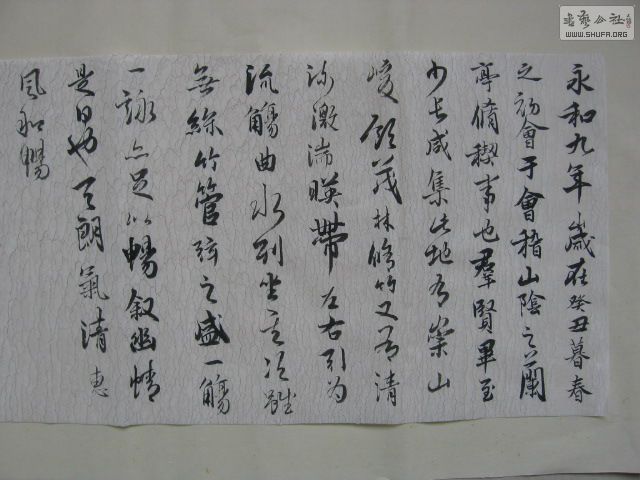 永和九年歲在癸丑暮春
之初會于會稽山陰之蘭
亭脩稧事也羣賢畢至
少長咸集此地有崇山
峻領茂林脩竹又有清
流激湍暎帶左右引為
流觴曲水列坐其次雖
無絲竹管弦之盛一觴
一詠亦足以暢叙幽情
是日也天朗氣清惠
風和暢
書藝公社
WWW.SHUFA.ORG